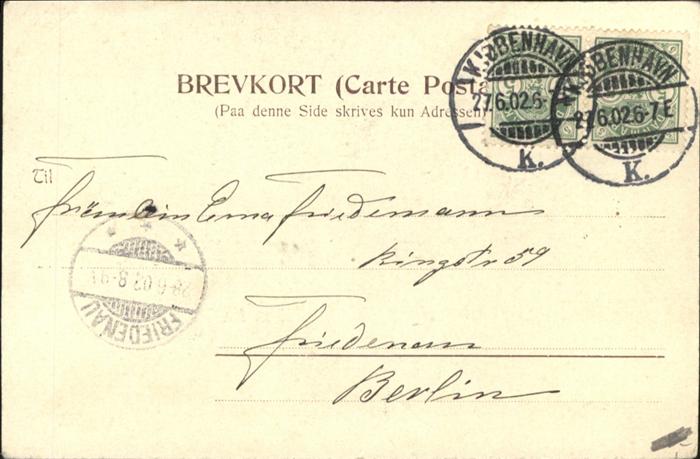 KJØBENHAVN
27.6.02.6-
K.
KJØBENHAVN
27.6.02.6-7E
K.
BREVKORT (Carte Posta
(Paa denne Side skrives kun Adressen)
Til
Fräulein Erna Friedemann
Ringstr 59
FRIEDENAU
28.6.02.8-9
Friedenau
Berlin